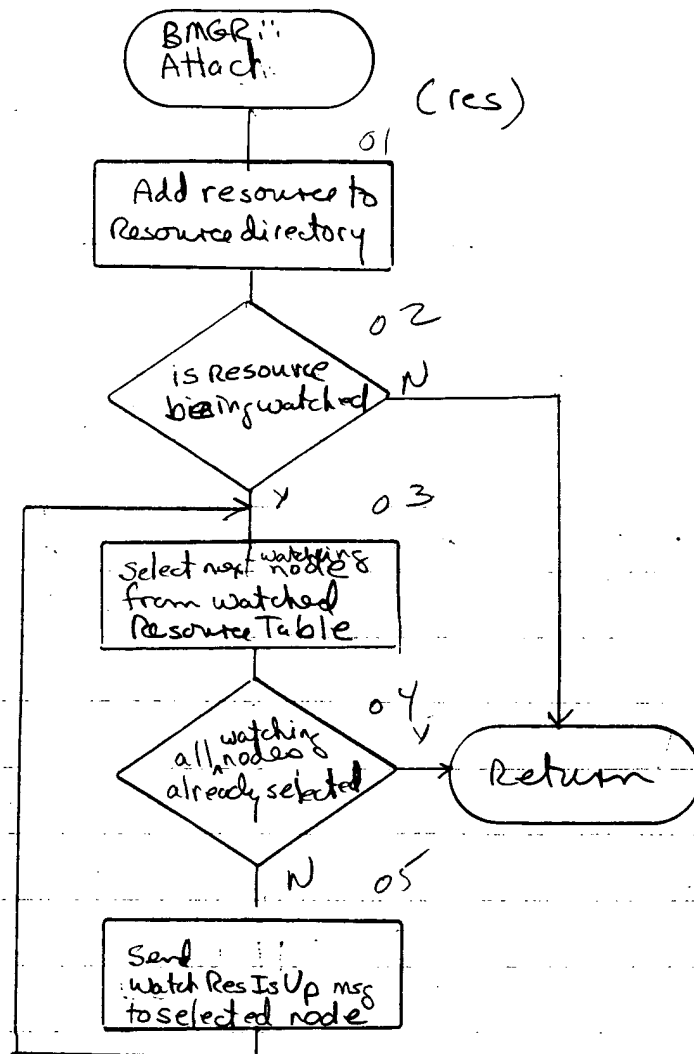 BMGR::
Attach
(res)
01
Add resource to
Resource directory
02
is Resource
being watched
N
Y
03
select next watching node
from watched
Resource Table
04
all watching nodes
already selected
Y
Return
N
05
Send
WatchResIsUp msg
to selected node